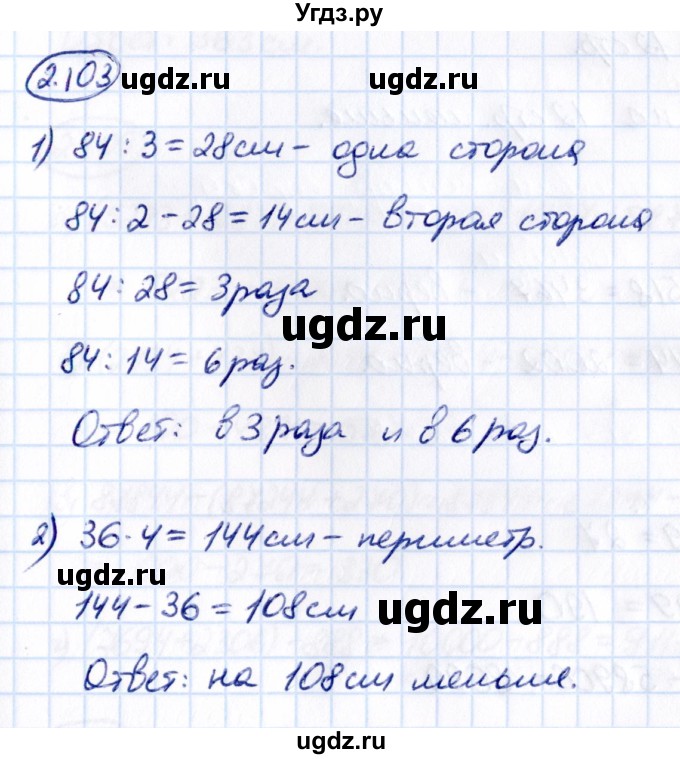 Угдз.ру
2.103
ugdz.ru ugdz.ru
1) 84 : 3 = 28 см - одна сторона
84 : 2 - 28 = 14 см - вторая сторона
84 : 28 = 3 раза
ugdz.ru
84 : 14 = 6 раз.
Ответ: в 3 раза и в 6 раз.
2) 36 · 4 = 144 см - периметр.
ugdz.ru
144 - 36 = 108 см
ugdz.ru
Ответ: на 108 см меньше.
ugdz.ru